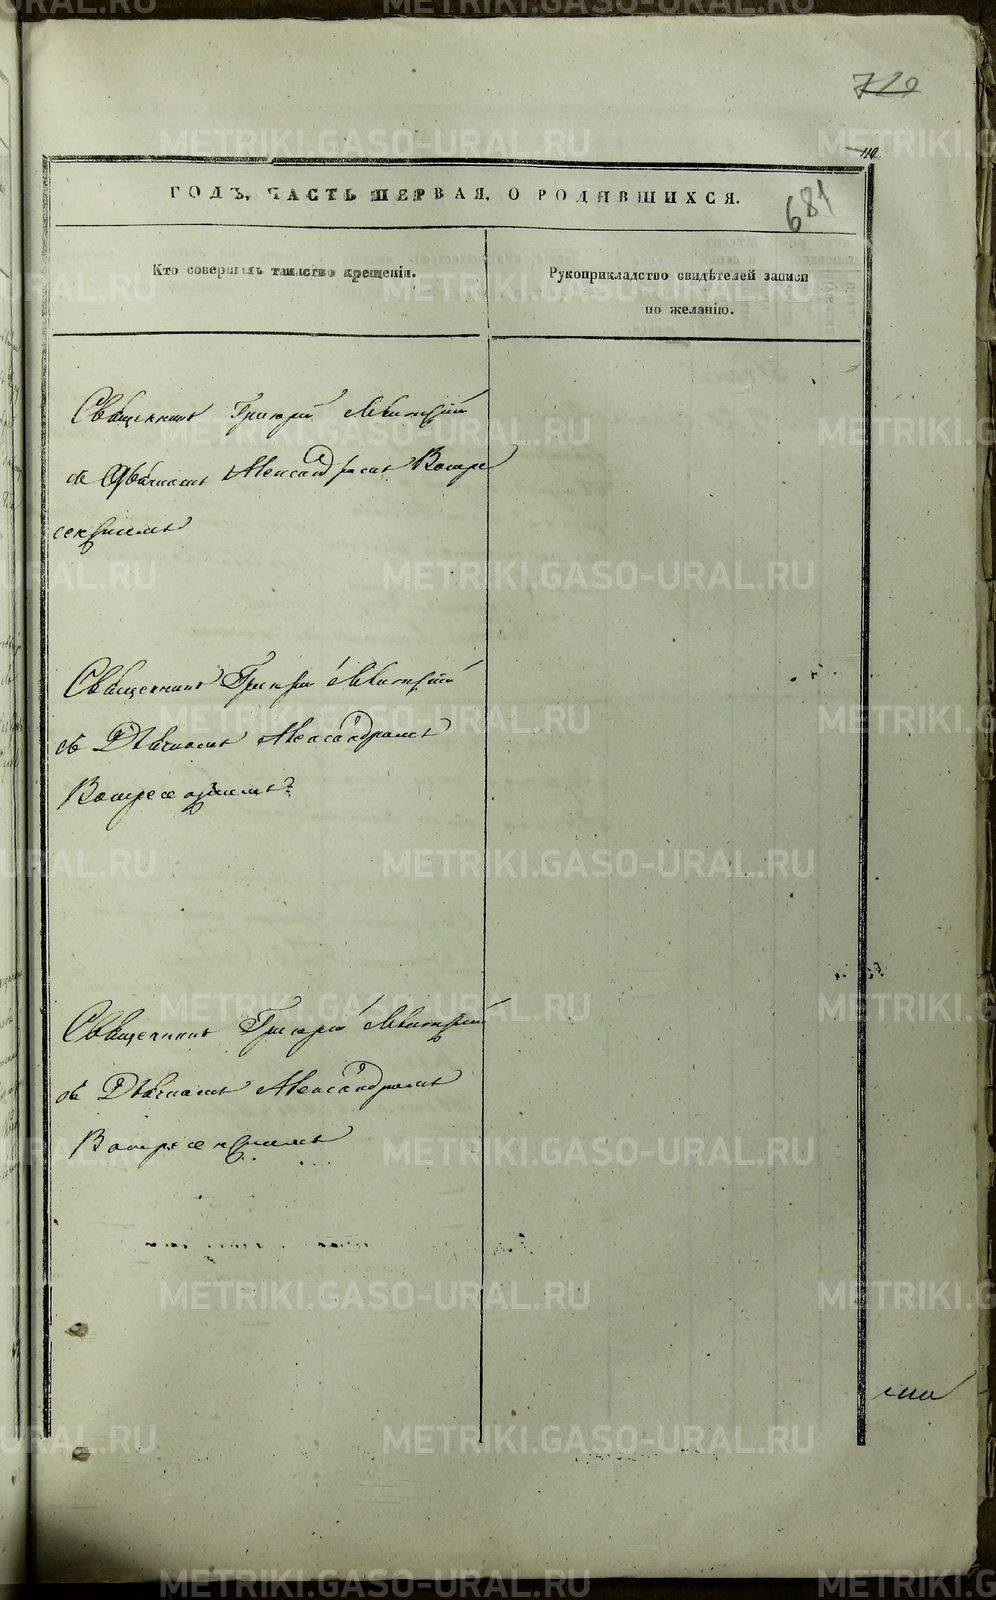 719
681
ГОДЪ, ЧАСТЬ ПЕРВАЯ, О РОДИВШИХСЯ.
Кто совершалъ таинство крещенія.
Рукоприкладство свидѣтелей записи
по желанію.
Священникъ Григорій Левитскій
съ Дьячкомъ Александромъ Воскре
сенскимъ
Священникъ Григорій Левитскій
съ Дьячкомъ Александромъ
Воскресенскимъ
Священникъ Григорій Левитскій
съ Дьячкомъ Александромъ
Воскресенскимъ
METRIKI.GASO-URAL.RU